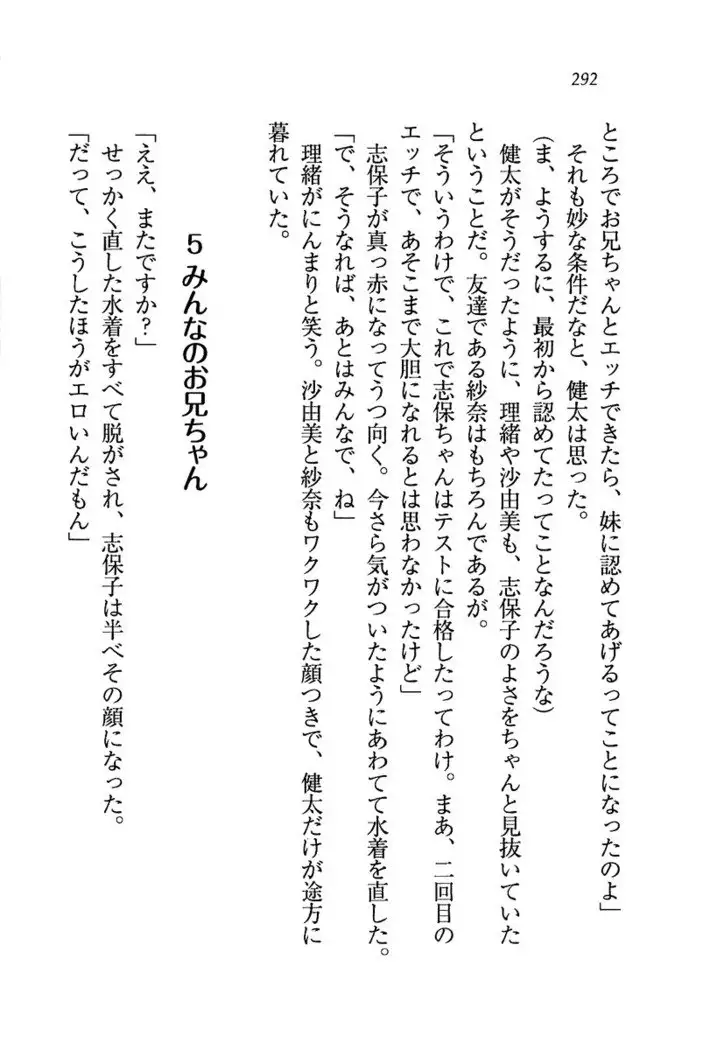 292
ところでお兄ちゃんとエッチできたら、妹に認めてあげるってことになったのよ」
それも妙な条件だなと、健太は思った。
(ま、ようするに、最初から認めてたってことなんだろうな)
健太がそうだったように、理緒や沙由美も、志保子のよさをちゃんと見抜いていた
ということだ。友達である紗奈はもちろんであるが。
「そういうわけで、これで志保ちゃんはテストに合格したってわけ。まあ、二回目の
エッチで、あそこまで大胆になれるとは思わなかったけど」
志保子が真っ赤になってうつ向く。今さら気がついたようにあわてて水着を直した。
「で、そうなれば、あとはみんなで、ね」
理緒がにんまりと笑う。沙由美と紗奈もワクワクした顔つきで、健太だけが途方に
暮れていた。
5 みんなのお兄ちゃん
「ええ、またですか?」
せっかく直した水着をすべて脱がされ、志保子は半べその顔になった。
「だって、こうしたほうがエロいんだもん」